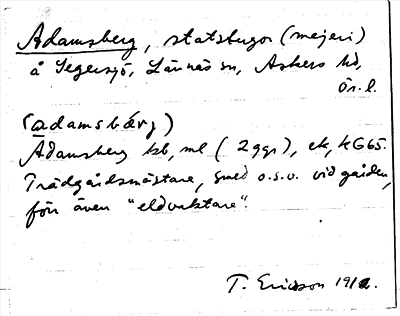 Adamsberg, statstugor (mejeri)
å Segersjö, Lännäs sn, Askers hd,
Ör. l.
(adamsbærj)
Adamsberg kb, ml (2 ggr), ek, KG65.
Trädgårdsmästare, smed o.s.v. vid gården,
förr även "eldvaktare".
T. Ericsson 1912.